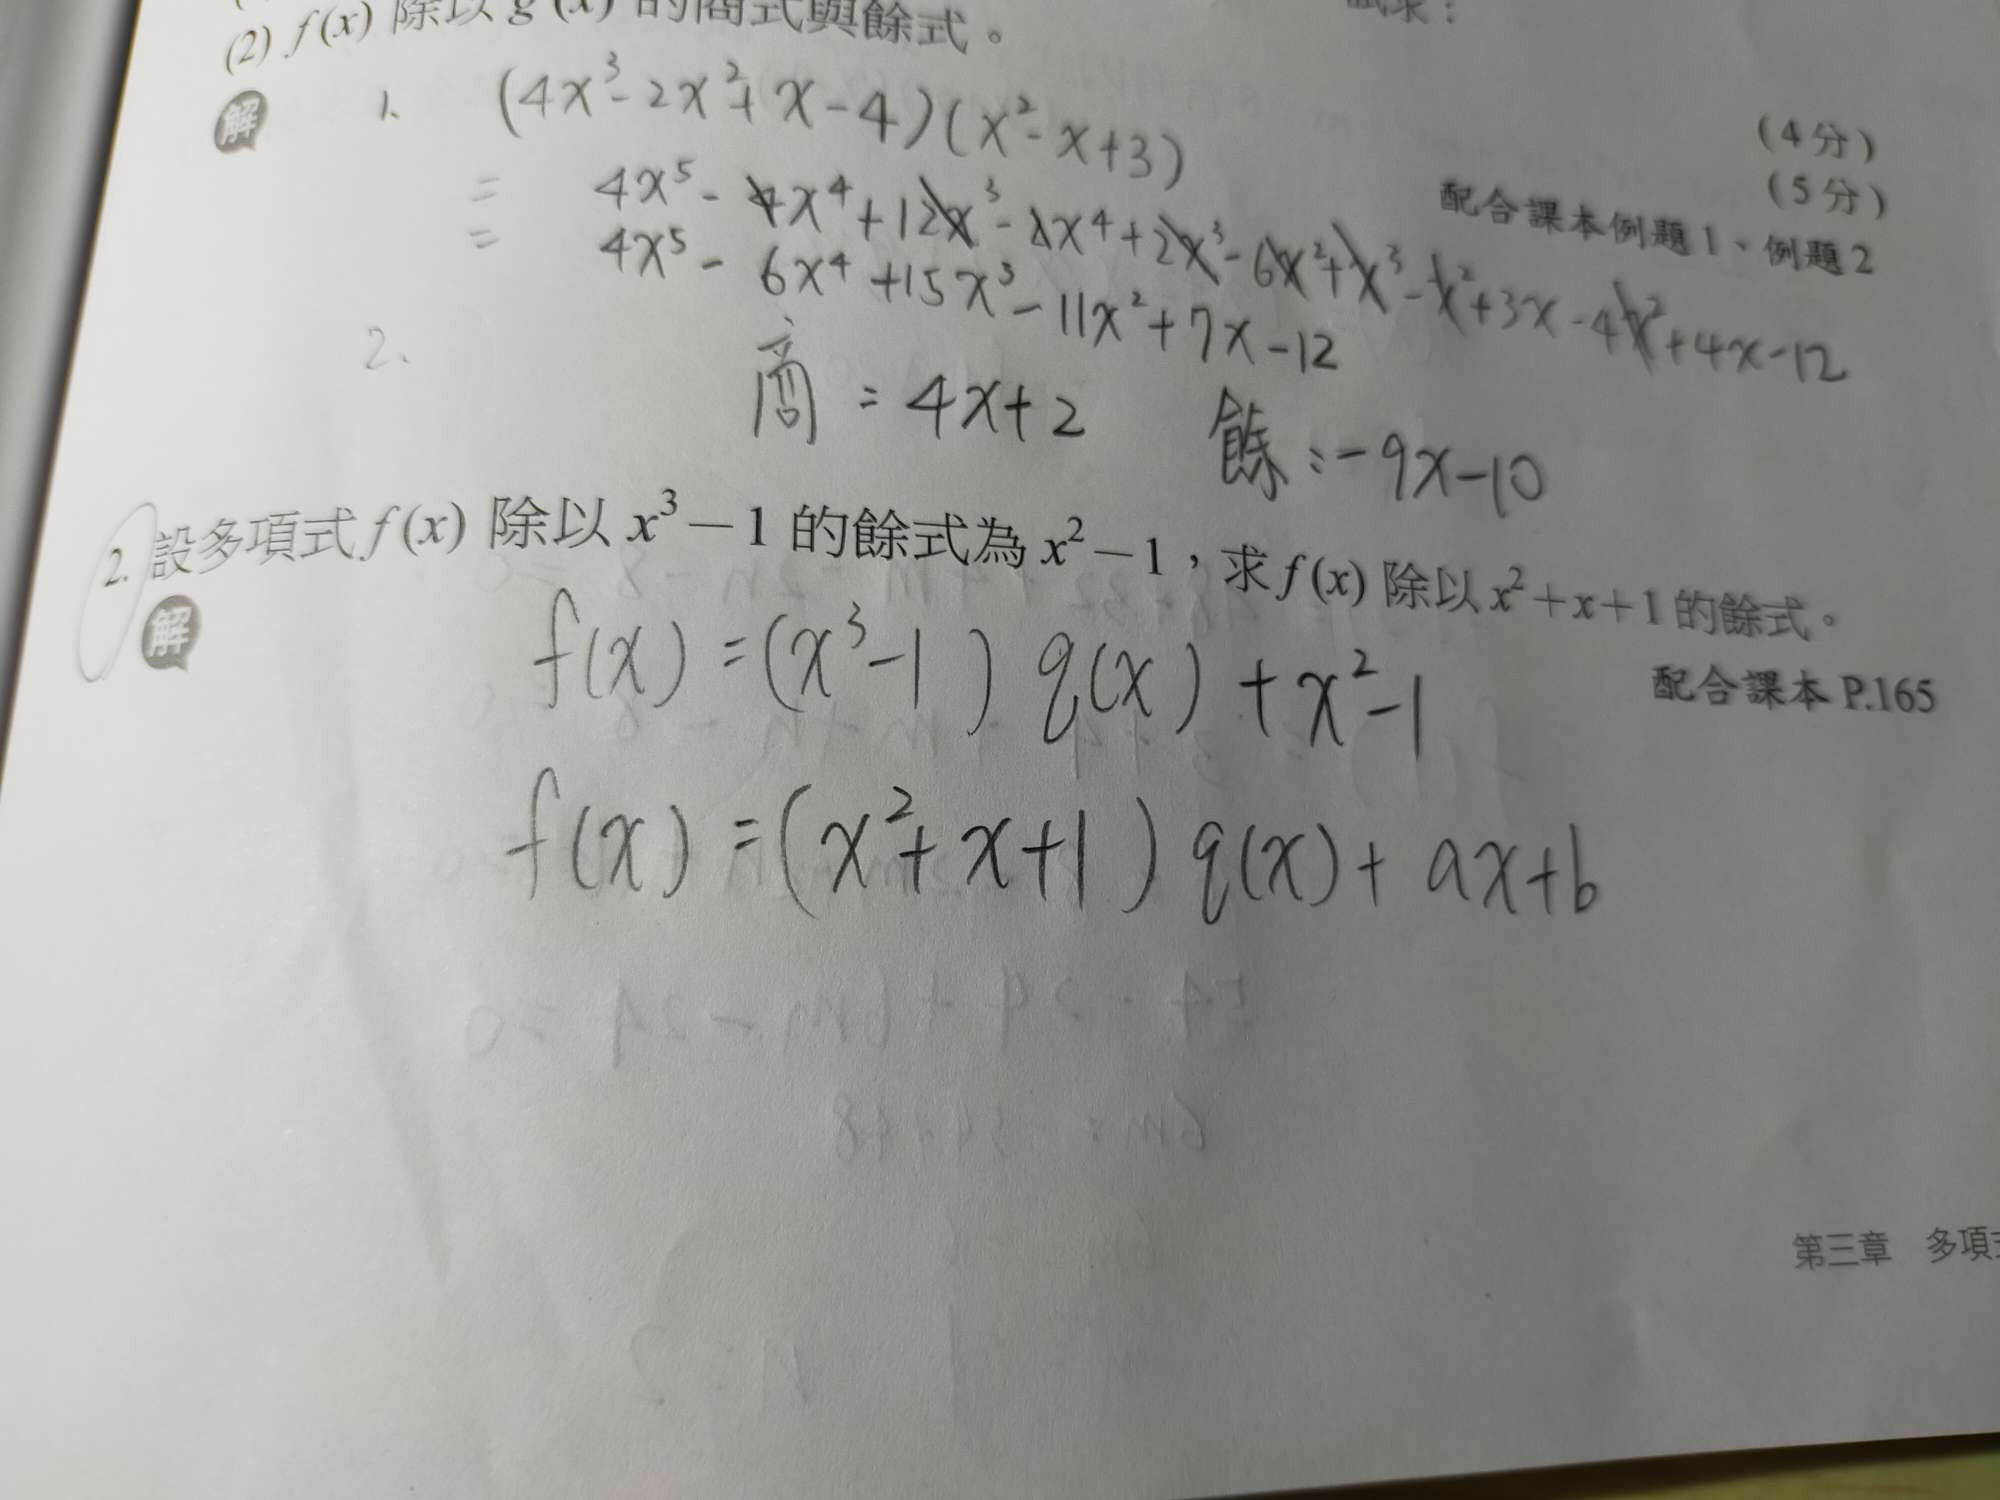 (2) f(x) 除以 g(x) 的商式與餘式。
試求：
解
1. (4x³-2x²+x-4)(x²-x+3)
(4分)
(5分)
= 4x⁵-4x⁴+12x³-2x⁴+2x³-6x²+x³-x²+3x-4x²+4x-12
配合課本例題1、例題2
= 4x⁵-6x⁴+15x³-11x²+7x-12
2. 商：4x+2 餘：-9x-10
2. 設多項式 f(x) 除以 x³－1 的餘式為 x²－1，求 f(x) 除以 x²＋x＋1 的餘式。
解
配合課本 P.165
f(x)=(x³-1)q(x)+x²-1
f(x)=(x²+x+1)q(x)+ax+b
第三章 多項